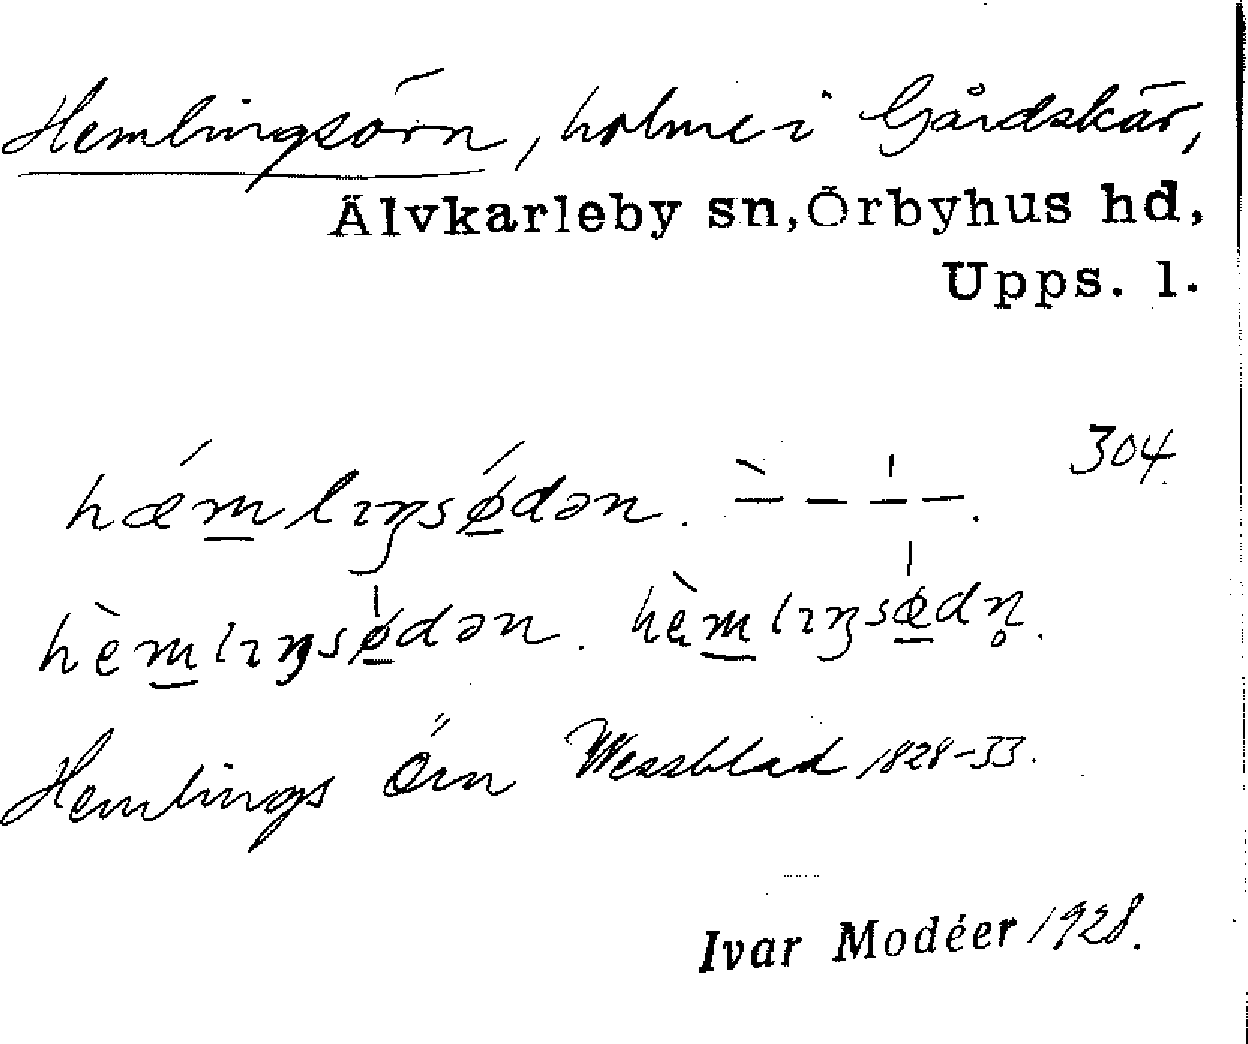 Hemlingsörn, holme i Gårdskär,
Älvkarleby sn, Örbyhus hd,
Upps. l.
304.
hǽm̲lıŋsǿ̲dən. – – – –.
hèm̲lıŋsø̲̍dən. hèm̲lıŋsœ̲̍dn̥.
Hemlings Örn Wessblad 1828-33.
Ivar Modéer 1928.